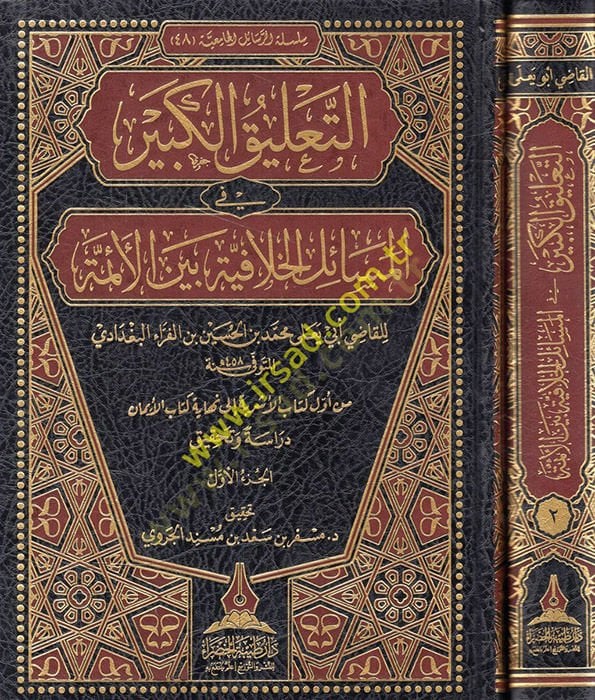 سلسلة الرسائل الجامعية (٤٨)
التعليق الكبير
في
المسائل الخلافية بين الأئمة
للقاضي أبي يعلى محمد بن الحسين بن الفراء البغدادي
المتوفى سنة ٤٥٨هـ
من أول كتاب الأشربة إلى نهاية كتاب الأيمان
دراسة وتحقيق
الجزء الأول
تحقيق
د. مسفر بن سعد بن مسند الجروي
دار طيبة الخضراء
للنشر والتوزيع
www.irsad.com.tr
القاضي أبو يعلى
التعليق الكبير
في
المسائل الخلافية بين الأئمة
٢
دار طيبة الخضراء
للنشر والتوزيع